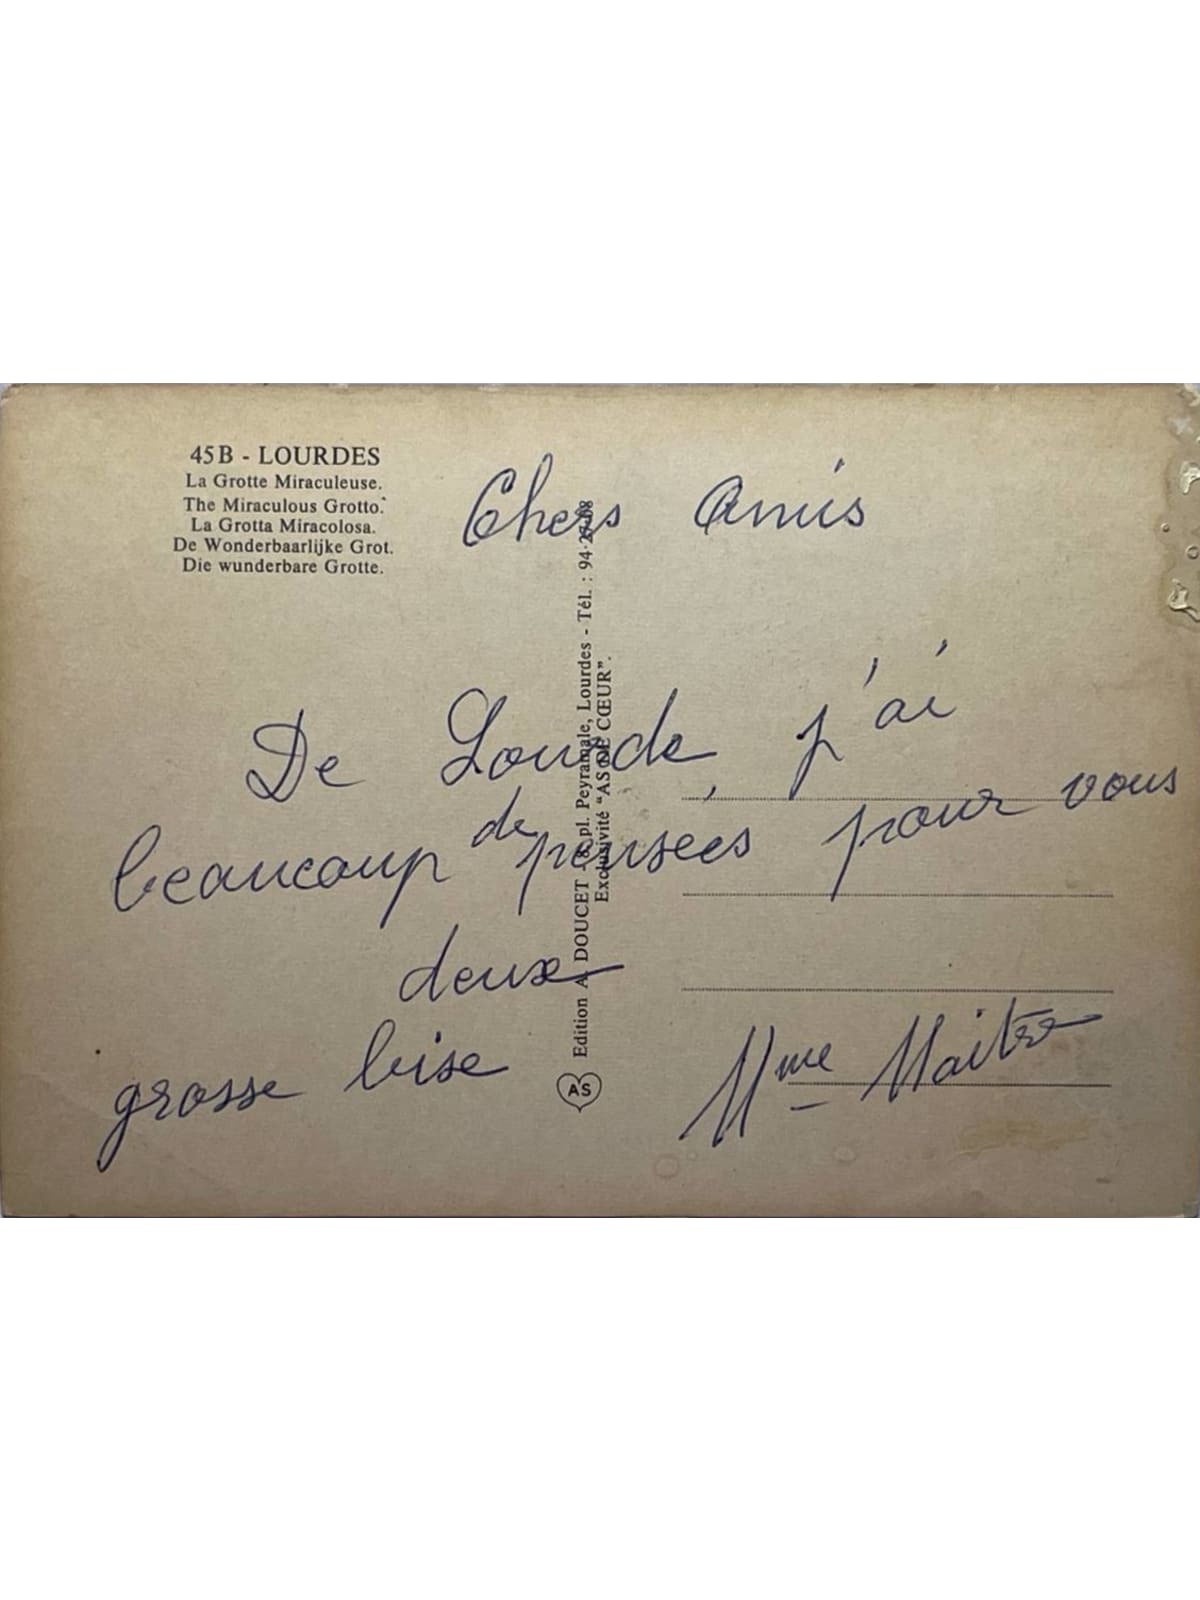 45B - LOURDES
La Grotte Miraculeuse.
The Miraculous Grotto.
La Grotta Miracolosa.
De Wonderbaarlijke Grot.
Die wunderbare Grotte.
Chers Amis
De Lourde, j'ai
beaucoup de pensées pour vous
deux
grosse bise
Mme Maitre
Edition A. DOUCET - 8, pl. Peyramale, Lourdes - Tél. : 94-27-08
Exclusivité "AS DE CŒUR".
AS